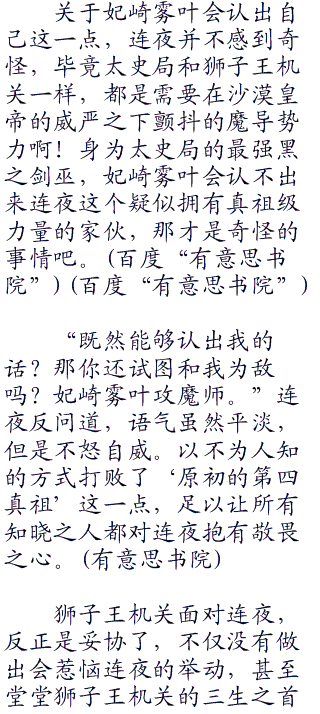 关于妃崎雾叶会认出自
己这一点，连夜并不感到奇
怪，毕竟太史局和狮子王机
关一样，都是需要在沙漠皇
帝的威严之下颤抖的魔导势
力啊！身为太史局的最强黑
之剑巫，妃崎雾叶会认不出
来连夜这个疑似拥有真祖级
力量的家伙，那才是奇怪的
事情吧。(百度“有意思书
院”)(百度“有意思书院”)
“既然能够认出我的
话？那你还试图和我为敌
吗？妃崎雾叶攻魔师。”连
夜反问道，语气虽然平淡，
但是不怒自威。以不为人知
的方式打败了‘原初的第四
真祖’这一点，足以让所有
知晓之人都对连夜抱有敬畏
之心。(有意思书院)
狮子王机关面对连夜，
反正是妥协了，不仅没有做
出会惹恼连夜的举动，甚至
堂堂狮子王机关的三生之首